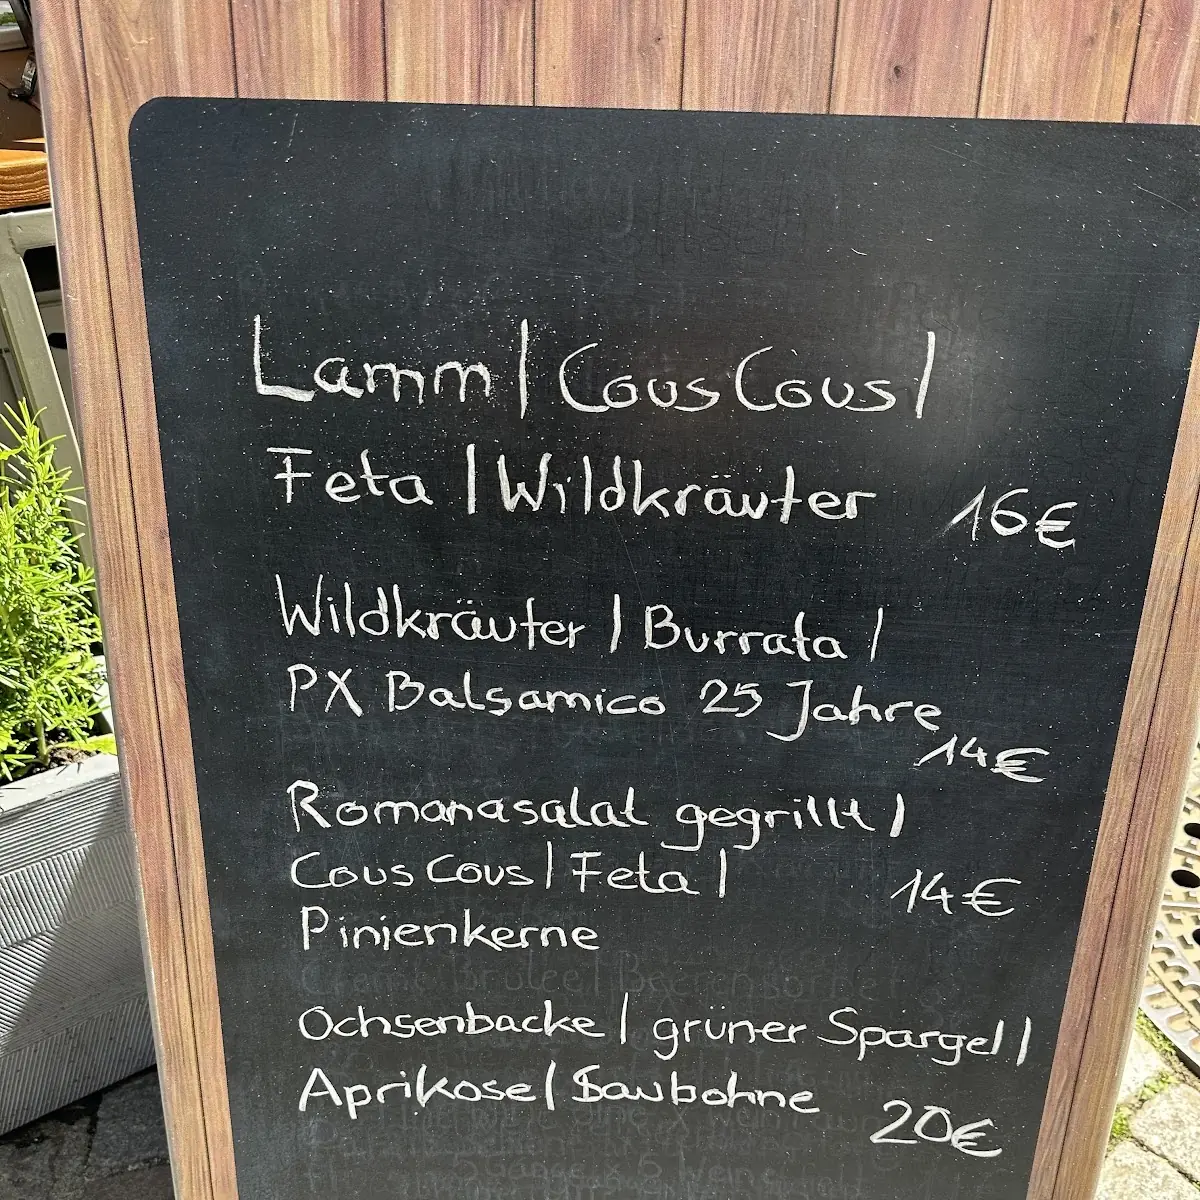 Lamm | CousCous |
Feta | Wildkräuter 16€
Wildkräuter | Burrata |
PX Balsamico 25 Jahre
14€
Romanasalat gegrillt |
CousCous | Feta | 14€
Pinienkerne
Creme Brulee | Beerensorbet
Ochsenbacke | grüner Spargel |
Aprikose | Saubohne 20€
5 Gänge x 5 Weine